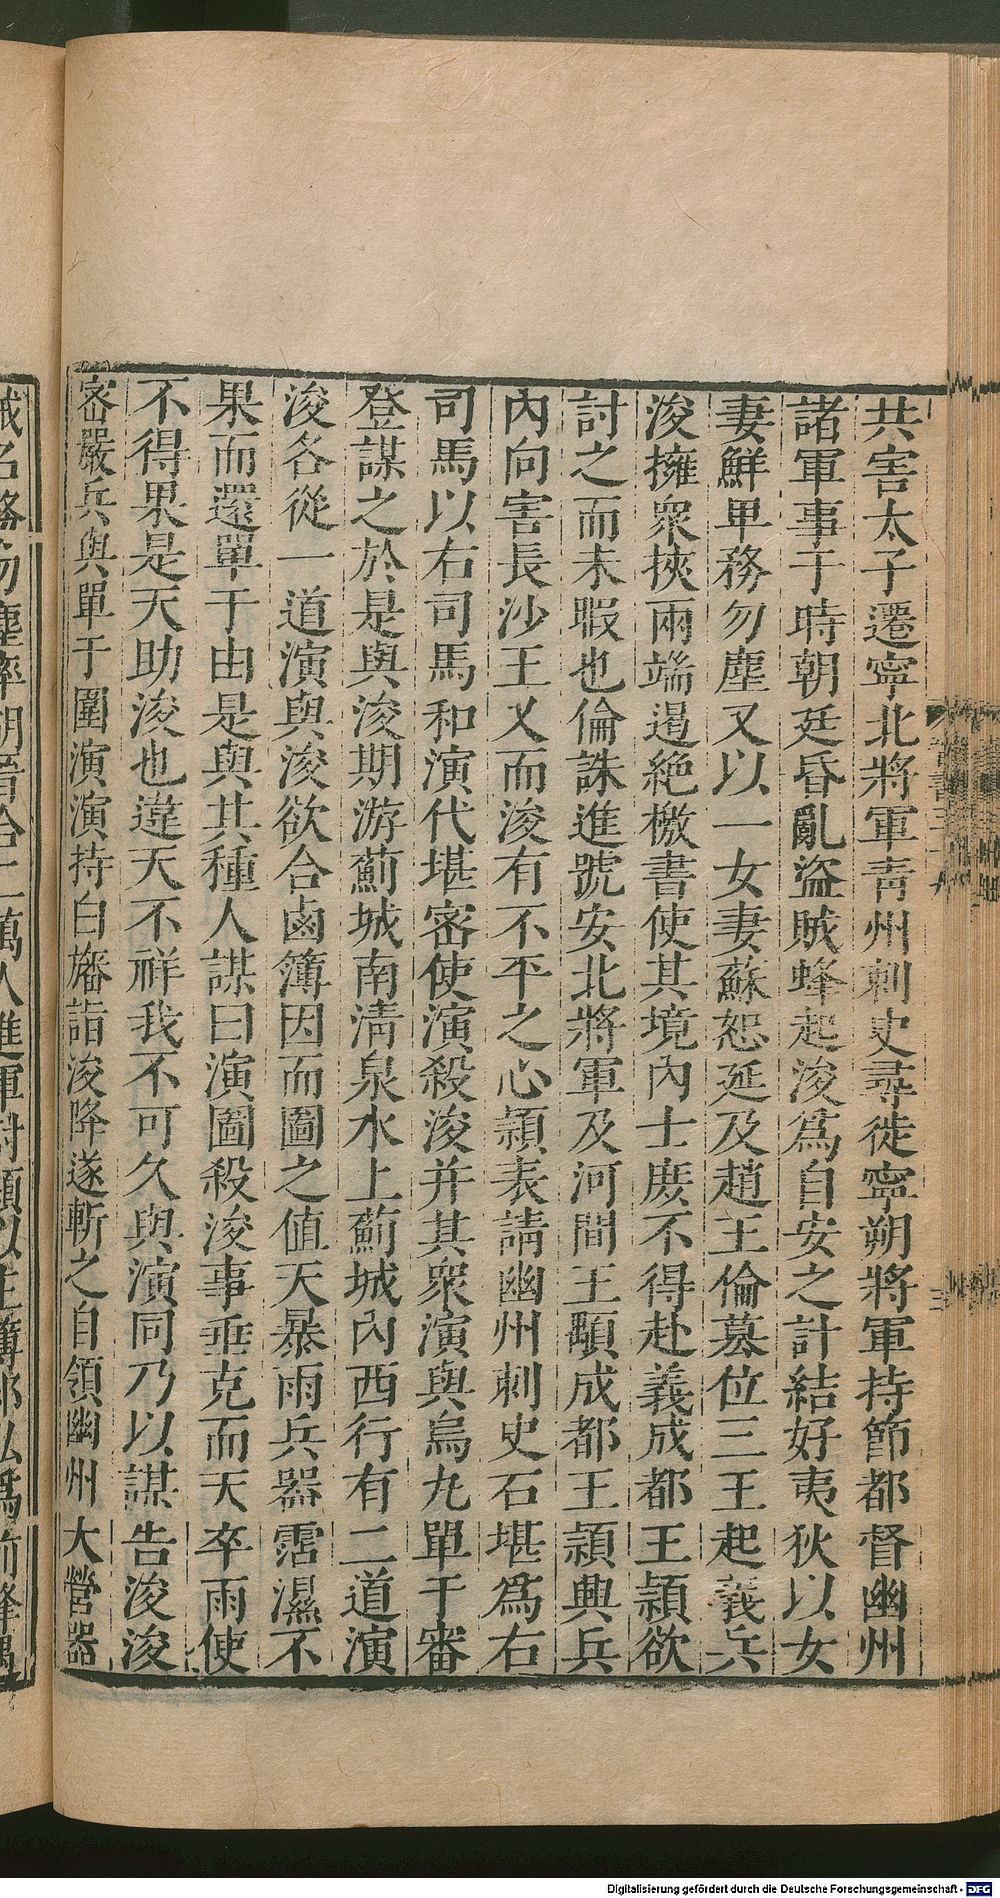 共害太子遷寧北將軍靑州刺史尋徙寧朔將軍持節都督幽州
諸軍事于時朝廷昏亂盜賊蜂起浚爲自安之計結好夷狄以女
妻鮮卑務勿塵又以一女妻蘇恕延及趙王倫篡位三王起義兵
浚擁衆挾兩端遏絶檄書使其境內士庶不得赴義成都王頴欲
討之而未暇也倫誅進號安北將軍及河間王顒成都王頴興兵
內向害長沙王乂而浚有不平之心頴表請幽州刺史石堪爲右
司馬以右司馬和演代堪密使演殺浚并其衆演與烏丸單于審
登謀之於是與浚期游薊城南淸泉水上薊城內西行有二道演
浚各從一道演與浚欲合鹵簿因而圖之値天暴雨兵器霑濕不
果而還單于由是與其種人謀曰演圖殺浚事垂克而天卒雨使
不得果是天助浚也違天不祥我不可久與演同乃以謀告浚浚
密嚴兵與單于圍演演持白旛詣浚降遂斬之自領幽州大營器
械召務勿塵率胡晉合二萬人進軍討頴以主簿祁弘爲前鋒遇
Digitalisierung gefördert durch die Deutsche Forschungsgemeinschaft - DFG